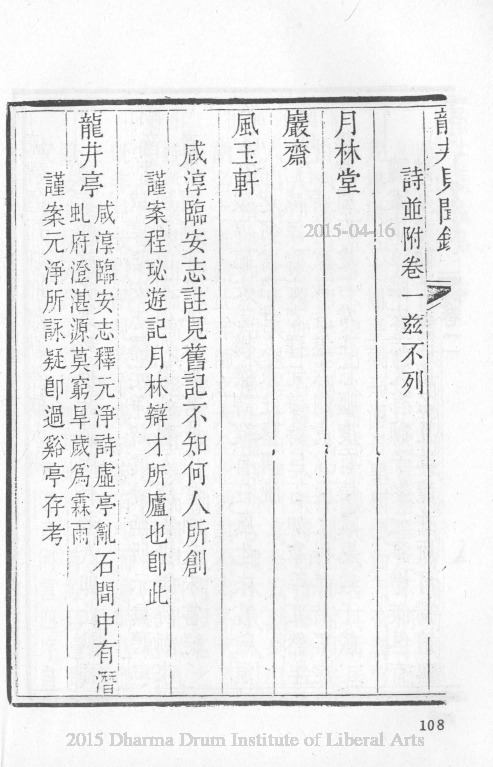 龍井見聞錄
詩並附卷一茲不列
月林堂
巖齋
風玉軒
咸淳臨安志註見舊記不知何人所創
謹案程珌遊記月林辯才所廬也卽此
龍井亭
咸淳臨安志釋元淨詩虛亭亂石間中有潛
虬府澄湛源莫窮旱歲爲霖雨
謹案元淨所詠疑卽過谿亭存考
2015-04-16
108
2015 Dharma Drum Institute of Liberal Arts